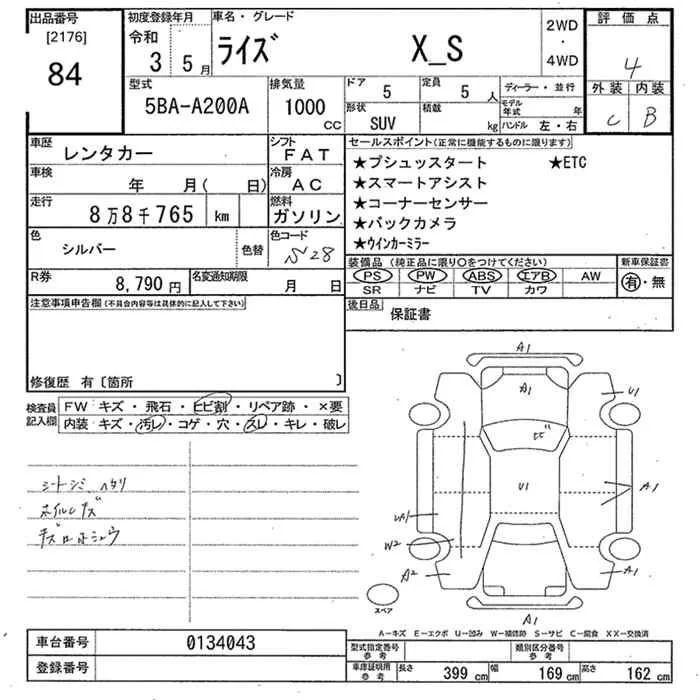 出品番号
[2176]
84
初度登録年月
令和
3 5月
車名・グレード
ライズ X_S
2WD
・
4WD
評価点
4
外装 内装
C B
型式
5BA-A200A
排気量
1000
CC
ドア
5
定員
5 人
形状
SUV
積載
kg
ディーラー・並行
モデル年式 年
ハンドル 左・右
車歴
レンタカー
シフト
FAT
車検
年 月( 日)
冷房
AC
走行
8万8千765 km
燃料
ガソリン
色
シルバー
色替
色コード
S28
R券
8,790円
名変通知期限
月 日
セールスポイント(正常に機能するものに限ります)
★プシュッスタート ★ETC
★スマートアシスト
★コーナーセンサー
★バックカメラ
★ウインカーミラー
装備品 (純正品に限り○をつけてください)
新車保証書
PS PW ABS エアB AW
有・無
SR ナビ TV カワ
後日品
保証書
注意事項申告欄(不具合内容等は具体的に記入して下さい)
修復歴 有〔箇所 〕
検査員
記入欄
FW キズ・飛石・ヒビ割・リペア跡・×要
内装 キズ・汚レ・コゲ・穴・スレ・キレ・破レ
シートシミ ヘタリ
ホイルキズ
A1
A1
U1
ヒビ
U1
A1
W1
W2
A2
A1
A1
スペア
A-キズ E-エクボ U-凹み W-補修跡 S-サビ C-腐食 XX-交換済
車台番号
0134043
登録番号
型式指定番号
参考
類別区分番号
参考
車庫証明用
参考
長さ 399 cm
幅 169 cm
高さ 162 cm